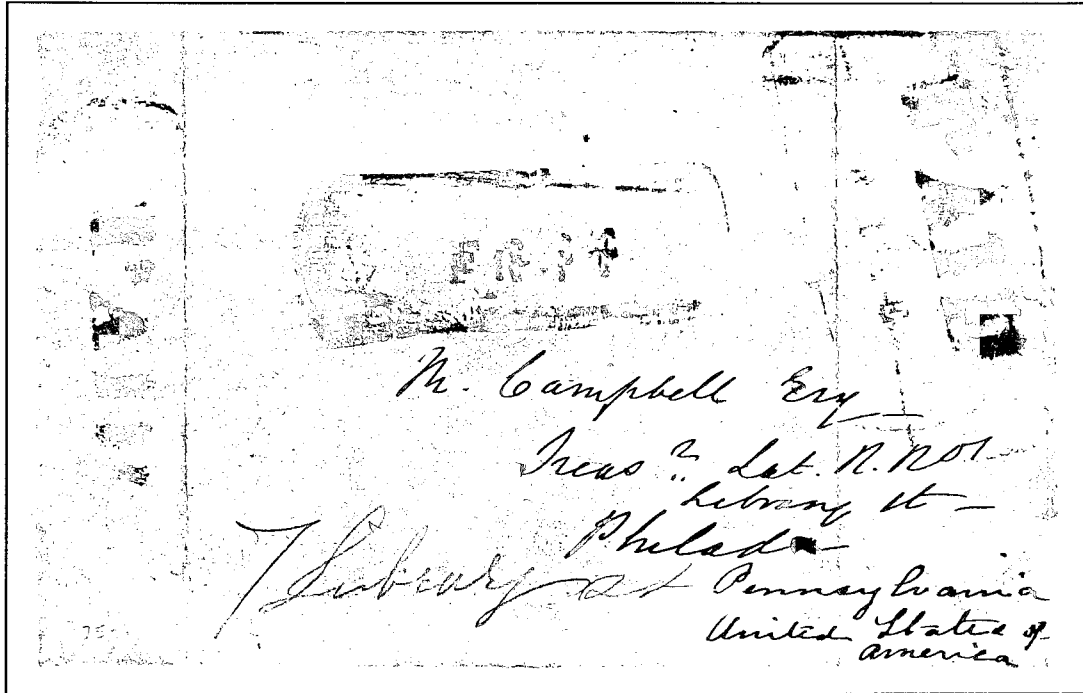 M. Campbell Esq
Treasr. Dat. N. No 1
Library st
Philada
7 Library st
Pennsylvania
United States of
America
75